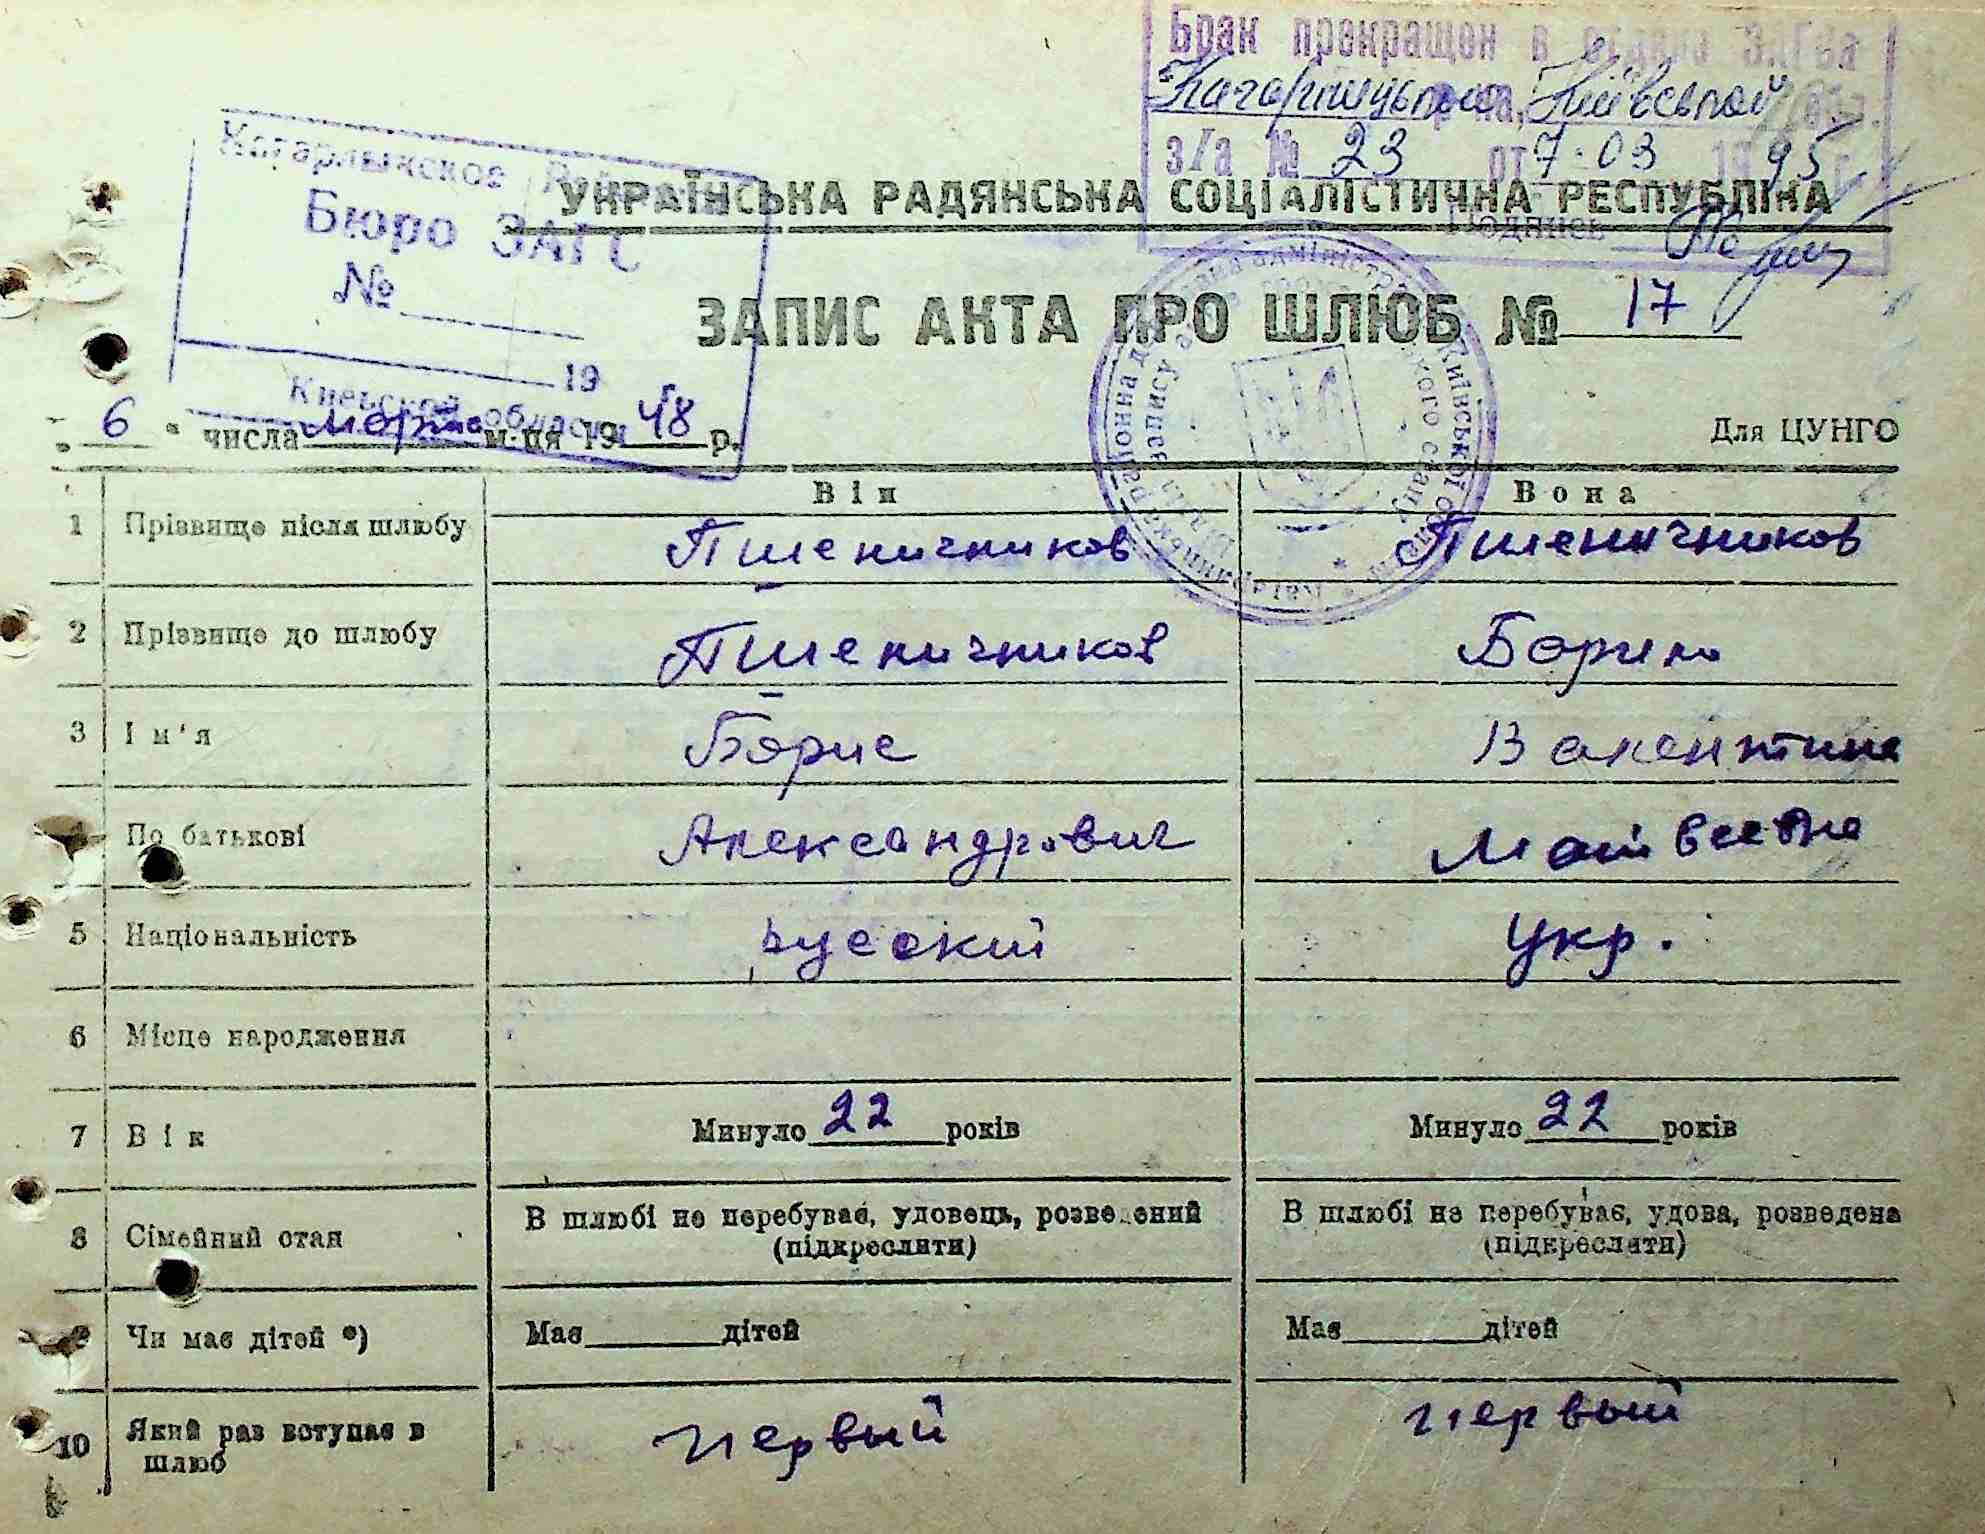 Брак прекращен в отделе ЗАГСа
з/а № 23 от 7.03 1995 г.
Подпись
Кагарлыкское
Бюро ЗАГС
№
19
Киевской области
УКРАЇНСЬКА РАДЯНСЬКА СОЦІАЛІСТИЧНА РЕСПУБЛІКА
ЗАПИС АКТА ПРО ШЛЮБ № 17
„ 6 “ числа марта м-ця 1948 р.
Для ЦУНГО
Він Вона
1 Прізвище після шлюбу Пшеничников Пшеничников
2 Прізвище до шлюбу Пшеничников
3 Ім'я Борис Валентина
4 По батькові Александрович Матвеевна
5 Національність русский укр.
6 Місце народження
7 Вік Минуло 22 років Минуло 22 років
8 Сімейний стан В шлюбі не перебуває, удовець, розведений (підкреслити) В шлюбі не перебуває, удова, розведена (підкреслити)
9 Чи має дітей *) Має дітей Має дітей
10 Який раз вступає в шлюб первый первый